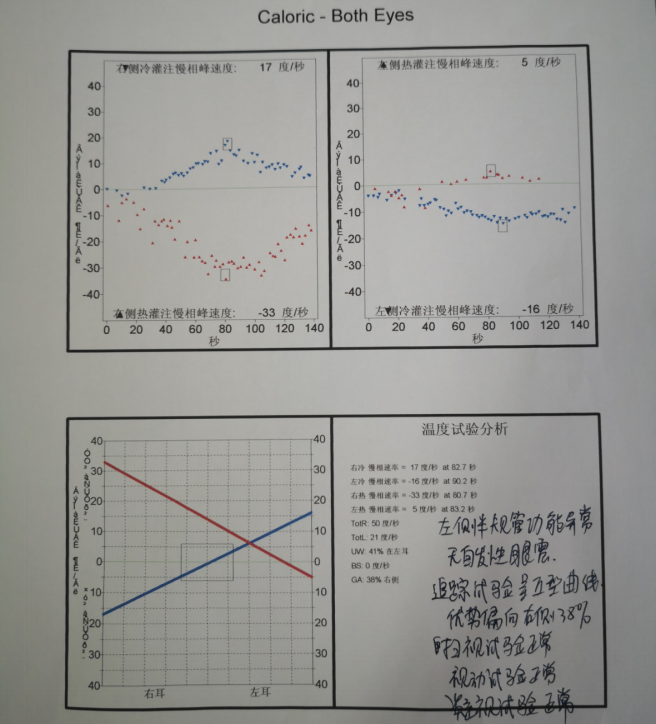 Caloric - Both Eyes
右侧冷灌注慢相峰速度: 17 度/秒
40
30
20
10
0
-10
-20
-30
-40
右侧热灌注慢相峰速度: -33 度/秒
0 20 40 60 80 100 120 140
秒
左侧热灌注慢相峰速度: 5 度/秒
40
30
20
10
0
-10
-20
-30
-40
左侧冷灌注慢相峰速度: -16 度/秒
0 20 40 60 80 100 120 140
秒
40 40
30 30
20 20
10 10
0 0
10 10
20 20
30 30
40 40
右耳 左耳
温度试验分析
右冷 慢相速率 = 17 度/秒 at 82.7 秒
左冷 慢相速率 = -16 度/秒 at 90.2 秒
右热 慢相速率 = -33 度/秒 at 80.7 秒
左热 慢相速率 = 5 度/秒 at 83.2 秒
TotR: 50 度/秒
TotL: 21 度/秒
UW: 41% 在左耳
BS: 0 度/秒
GA: 38% 右侧
左侧半规管功能异常
无自发性眼震.
追踪试验呈Ⅱ型曲线.
优势偏向右侧38%
扫视试验正常
视动试验正常
凝视试验正常